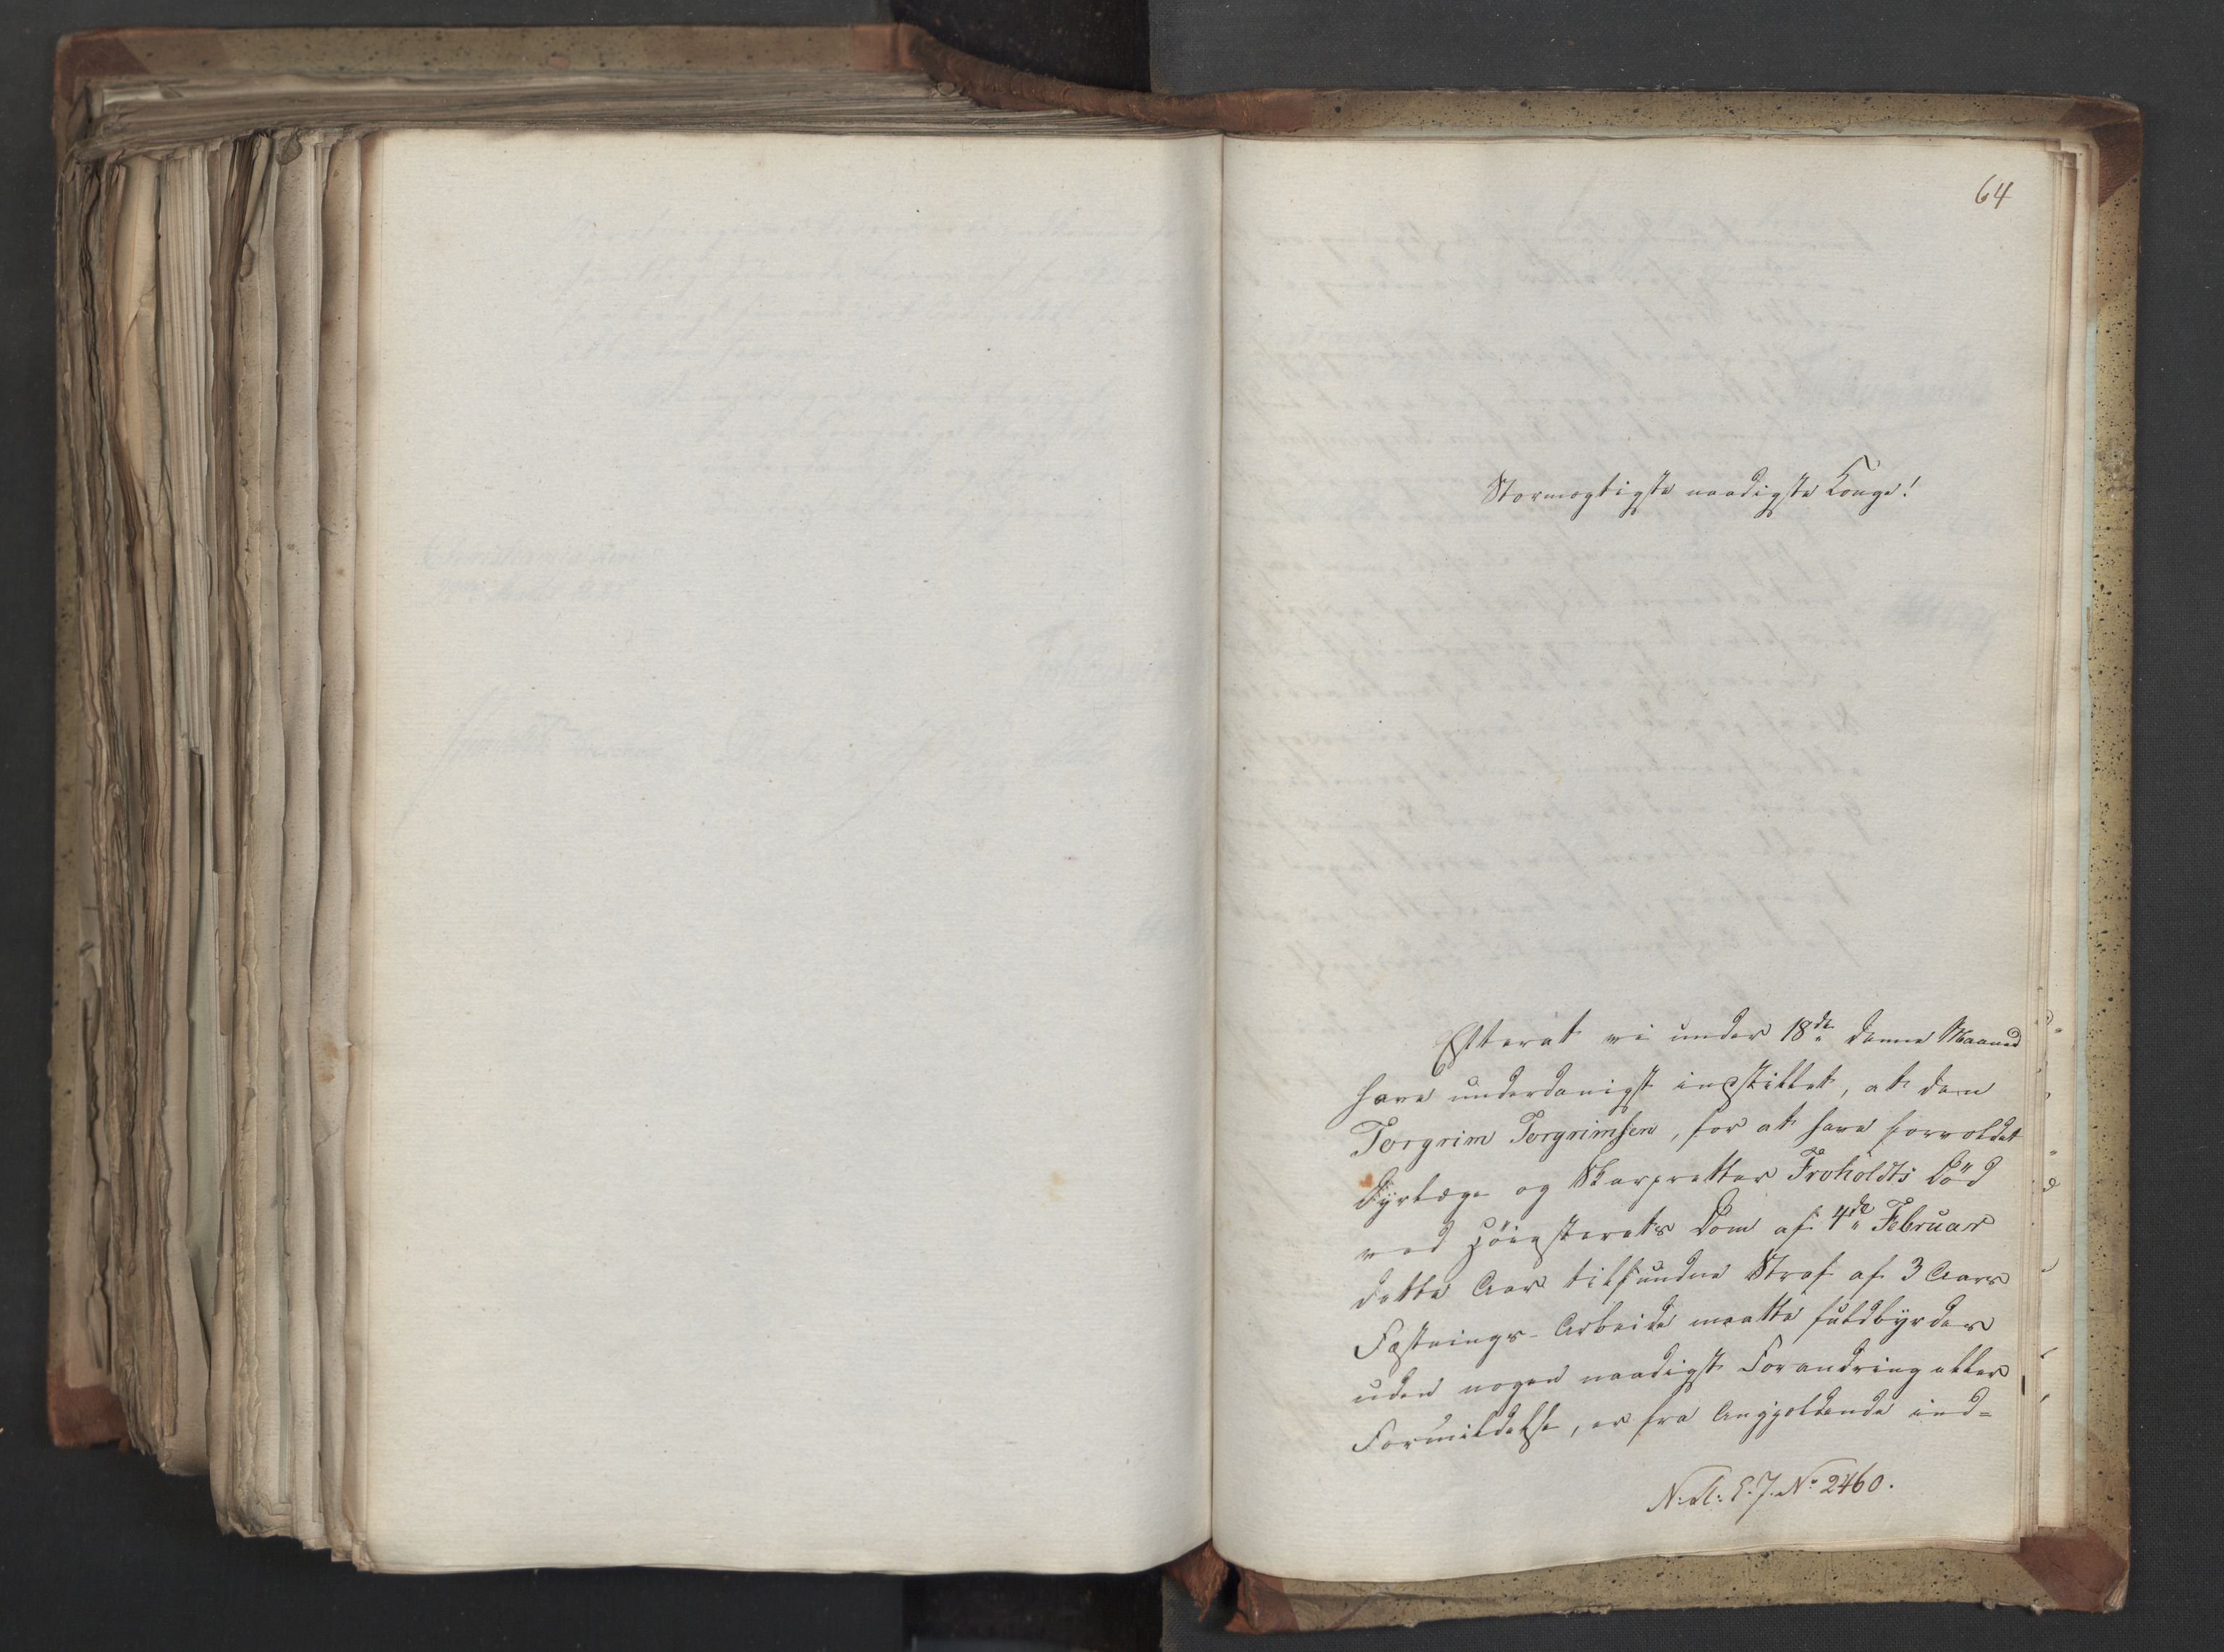 64
Stormægtigste naadigste Konge!
Efterat vi under 18de denne Maaned
have underdanigst indstillet, at den
Torgrim Torgrimsen, for at have forvoldet
Dyrlæge og Skarpretter Froholdts Död
ved Höiesterets Dom af 4de Februar
dette Aar tilfundne Straf af 3 Aars
Fæstnings-Arbeide maatte fuldbyrdes
uden nogen naadigst Forandring eller
Formildelse, er fra Angjeldende ind=
No 2460.